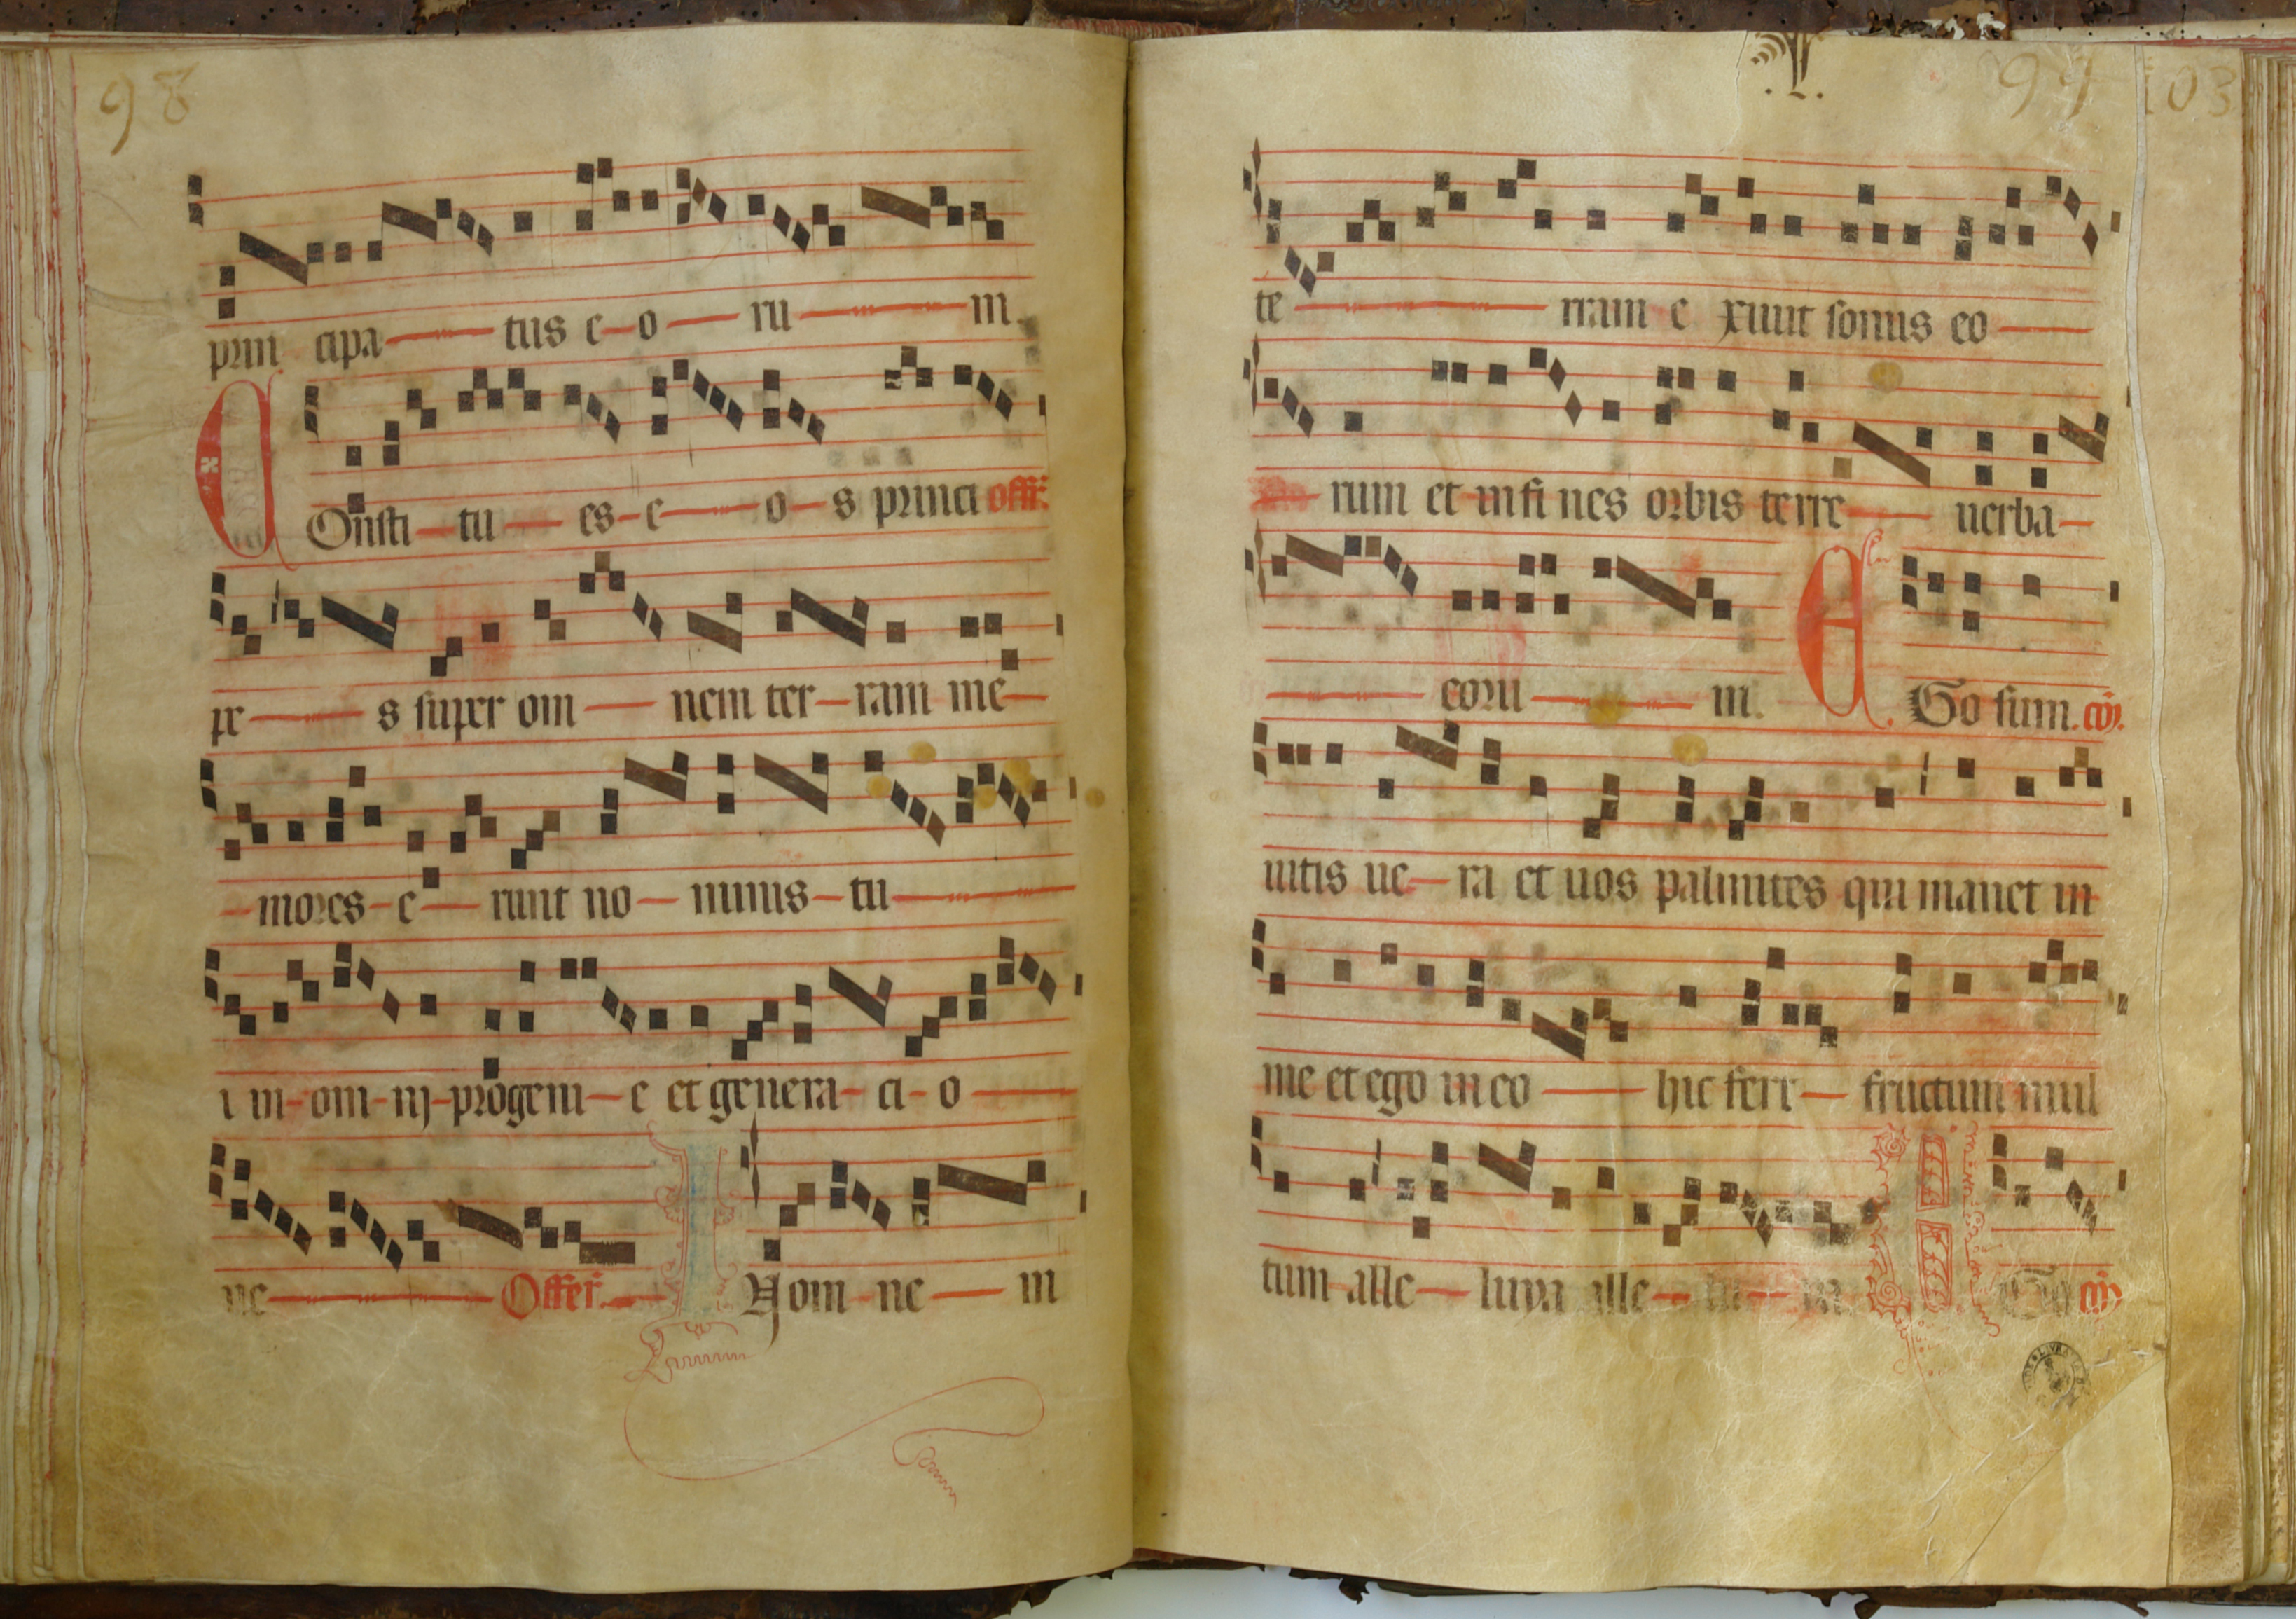 98
prin cipa tus e o ru m.
C Onsti tu es e o s princi offr.
pe s super om nem ter ram me
mores e runt no minis tu
i in om nj progeni e et genera ci o
ne Offer. I N om ne m
99 103
te rram e xiuit sonus eo
rum et in fi nes orbis terre uerba
eoru m. E Go sum. cō.
uitis ue ra et uos palmites qui manet in
me et ego in eo hic fert fructum mul
tum alle luya alle lu ya E Go cō